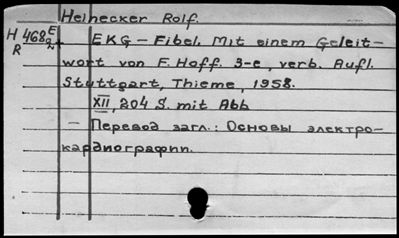 Heinecker Rolf.
H 468 E
R 2 N
EKG – Fibel. Mit einem Geleit-
wort von F. Hoff. 3-e, verb. Aufl.
Stuttgart, Thieme, 1958.
XII, 204 S. mit Abb
– Перевод загл.: Основы электро-
кардиографии.